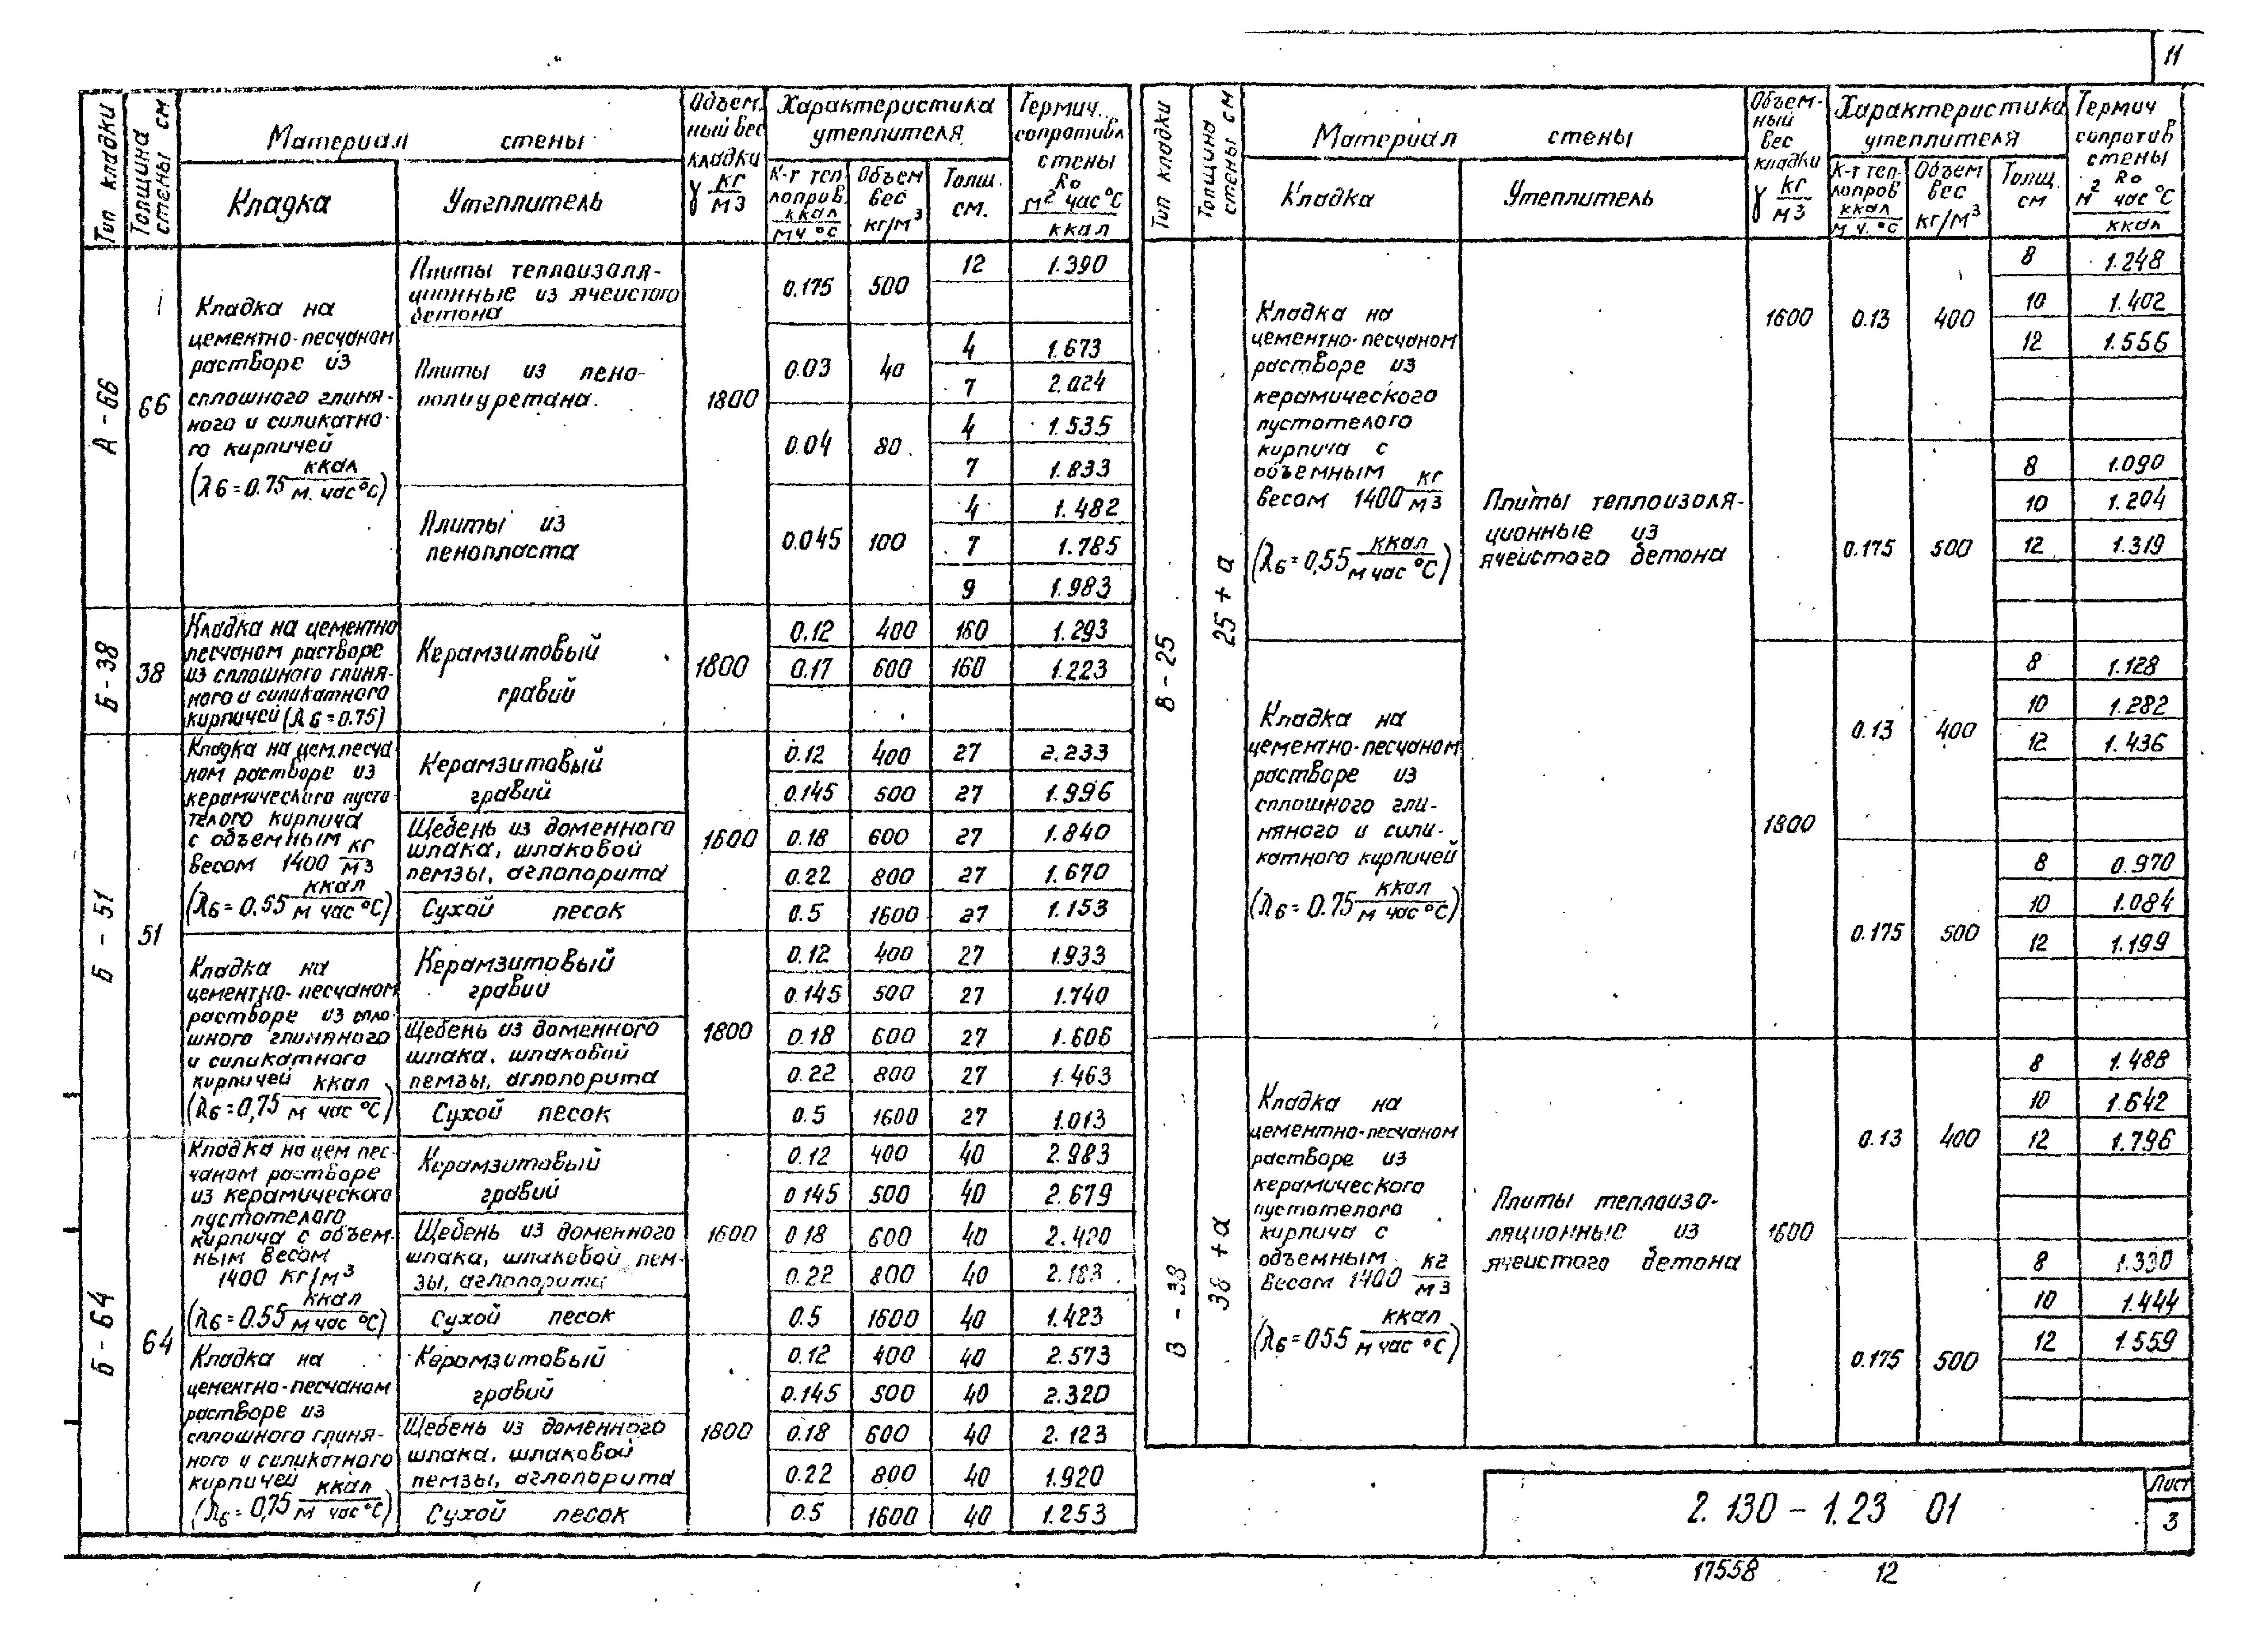 11
Тип кладки
Толщина стены см
Материал стены
Кладка
Утеплитель
Объем-
ный вес
кладки
γ кг/м3
Характеристика
утеплителя
К-т теп-
лопров.
ккал/м ч °С
Объем
вес
кг/м³
Толщ.
см.
Термич.
сопротивл
стены
Ro
м² час °С/ккал
А-66
66
Кладка на
цементно-песчаном
растворе из
сплошного глиня-
ного и силикатно-
го кирпичей
(λб=0.75 ккал/м. час °С)
1800
Плиты теплоизоля-
ционные из ячеистого
бетона
0.175 500 12 1.390
Плиты из пено-
полиуретана.
0.03 40 4 1.673
7 2.024
0.04 80 4 1.535
7 1.833
Плиты из
пенопласта
0.045 100 4 1.482
7 1.785
9 1.983
Б-38
38
Кладка на цементно
песчаном растворе
из сплошного глиня-
ного и силикатного
кирпичей (λб=0.75)
Керамзитовый
гравий
1800
0.12 400 160 1.293
0.17 600 160 1.223
Б-51
51
Кладка на цем.песча
ном растворе из
керамического пусто
телого кирпича
с объемным
весом 1400 кг/м3
(λб=0.55 ккал/м час °С)
1600
Керамзитовый
гравий
0.12 400 27 2.233
0.145 500 27 1.996
Щебень из доменного
шлака, шлаковой
пемзы, аглопорита
0.18 600 27 1.840
0.22 800 27 1.670
Сухой песок
0.5 1600 27 1.153
Кладка на
цементно-песчаном
растворе из спло-
шного глиняного
и силикатного
кирпичей
(λб=0,75 ккал/м час °С)
1800
Керамзитовый
гравий
0.12 400 27 1.933
0.145 500 27 1.740
Щебень из доменного
шлака, шлаковой
пемзы, аглопорита
0.18 600 27 1.606
0.22 800 27 1.463
Сухой песок
0.5 1600 27 1.013
Б-64
64
Кладка на цем пес-
чаном растворе
из керамического
пустотелого
кирпича с объем-
ным весом
1400 кг/м³
(λб=0.55 ккал/м час °С)
1600
Керамзитовый
гравий
0.12 400 40 2.983
0.145 500 40 2.679
Щебень из доменного
шлака, шлаковой пем-
зы, аглопорита
0.18 600 40 2.420
0.22 800 40 2.183
Сухой песок
0.5 1600 40 1.423
Кладка на
цементно-песчаном
растворе из
сплошного глиня-
ного и силикатного
кирпичей
(λб=0,75 ккал/м час °С)
1800
Керамзитовый
гравий
0.12 400 40 2.573
0.145 500 40 2.320
Щебень из доменного
шлака, шлаковой
пемзы, аглопорита
0.18 600 40 2.123
0.22 800 40 1.920
Сухой песок
0.5 1600 40 1.253
Тип кладки
Толщина стены см
Материал стены
Кладка
Утеплитель
Объем-
ный
вес
кладки
γ кг/м3
Характеристика
утеплителя
К-т теп-
лопров
ккал/м ч. °С
Объем
вес
кг/м³
Толщ.
см
Термич
сопротив
стены
Ro
м² час °С/ккал
В-25
25+а
Кладка на
цементно-песчаном
растворе из
керамического
пустотелого
кирпича с
объемным
весом 1400 кг/м3
(λб=0,55 ккал/м час °С)
Плиты теплоизоля-
ционные из
ячеистого бетона
1600
0.13 400 8 1.248
10 1.402
12 1.556
0.175 500 8 1.090
10 1.204
12 1.319
Кладка на
цементно-песчаном
растворе из
сплошного гли-
няного и сили-
катного кирпичей
(λб=0.75 ккал/м час °С)
1800
0.13 400 8 1.128
10 1.282
12 1.436
0.175 500 8 0.970
10 1.084
12 1.199
В-38
38+а
Кладка на
цементно-песчаном
растворе из
керамического
пустотелого
кирпича с
объемным
весом 1400 кг/м3
(λб=055 ккал/м час °С)
Плиты теплоизо-
ляционные из
ячеистого бетона
1600
0.13 400 8 1.488
10 1.642
12 1.796
0.175 500 8 1.330
10 1.444
12 1.559
2.130-1.23 01
Лист
3
17558 12